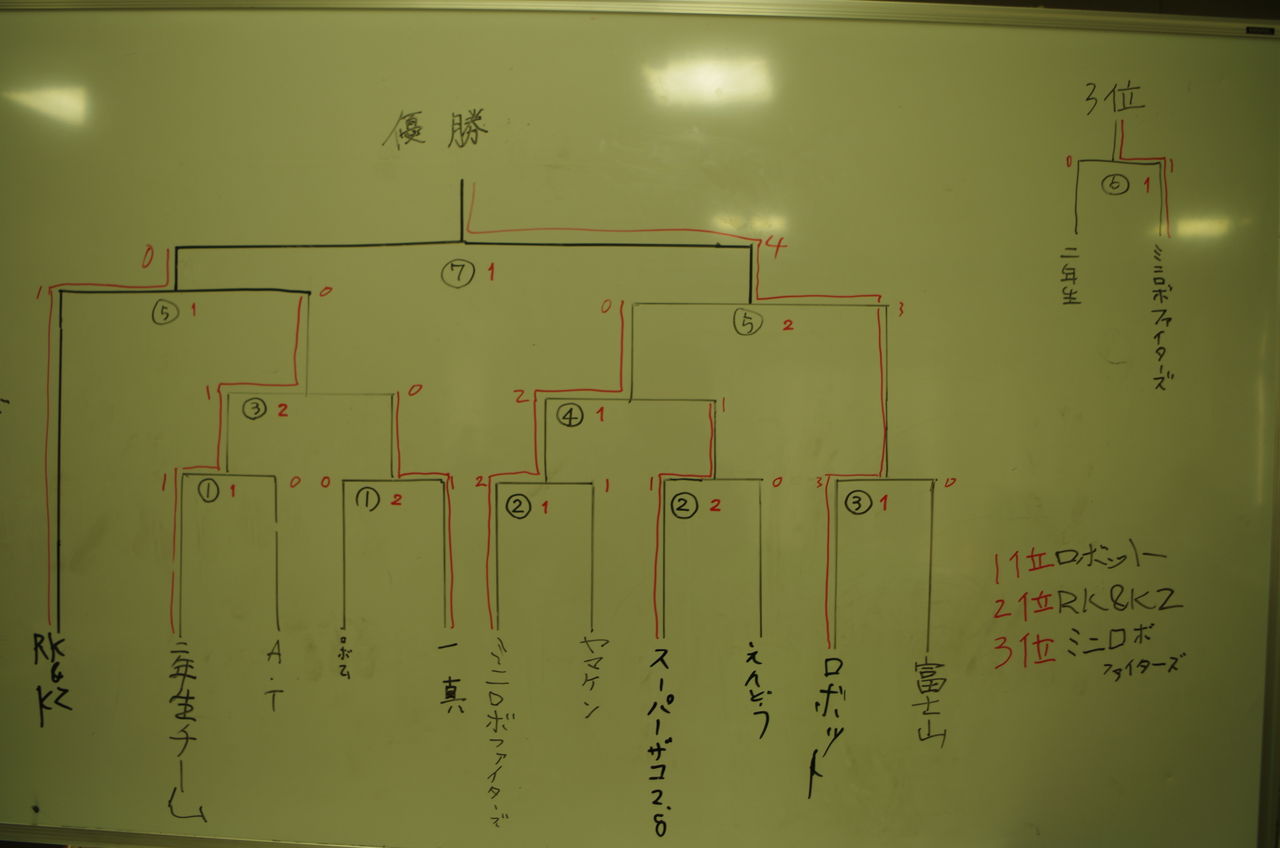 優勝
3位
0 1
⑥ 1
二年生
ミニロボファイターズ
0 4
⑦ 1
1 0
⑤ 1
0 3
⑤ 2
1 0
③ 2
2 1
④ 1
1 0
① 1
0 1
① 2
2 1
② 1
1 0
② 2
3 0
③ 1
RK&KZ
二年生チーム
A.T
ロボム
一真
ミニロボファイターズ
ヤマケン
スーパーザコ2.8
えんどう
ロボット
富士山
1位ロボット
2位RK&KZ
3位ミニロボ
ファイターズ